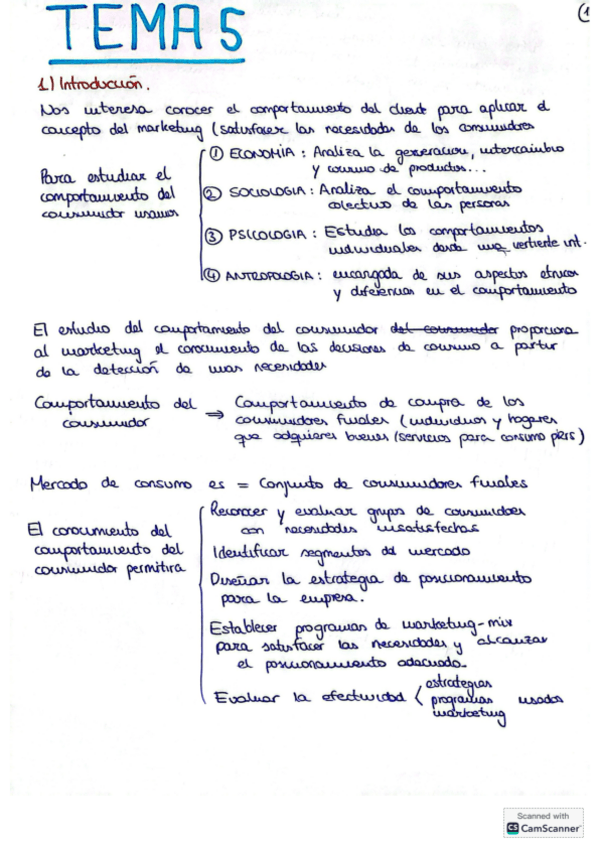 TEMA 5
1
1) Introducción.
Nos interesa conocer el comportamiento del client para aplicar el
concepto del marketing (satisfacer las necesidades de los consumidores
Para estudiar el
comportamiento del
consumidor usamos
① ECONOMÍA: Analiza la generacion, intercambio
y consumo de productos...
② SOCIOLOGIA: Analiza el comportamiento
colectivo de las personas
③ PSICOLOGIA: Estudia los comportamientos
individuales desde una vertiente int.
④ ANTROPOLOGIA: encargada de sus aspectos etnicos
y diferencias en el comportamiento
El estudio del comportamiento del consumidor del consumidor proporciona
al marketing el conocimiento de las decisiones de consumo a partir
de la detección de unas necesidades
Comportamiento del
consumidor
⇒ Comportamiento de compra de los
consumidores finales (individuos y hogares
que adquieren bienes/servicios para consumo pers)
Mercado de consumo es = Conjunto de consumidores finales
El conocimiento del
comportamiento del
consumidor permitira
Reconocer y evaluar grupos de consumidores
con necesidades insatisfechas
Identificar segmentos del mercado
Diseñar la estrategia de posicionamiento
para la empresa.
Establecer programas de marketing-mix
para satisfacer las necesidades y alcanzar
el posicionamiento adecuado.
Evaluar la efectividad
estrategias
programas usados
marketing
Scanned with
CS CamScanner